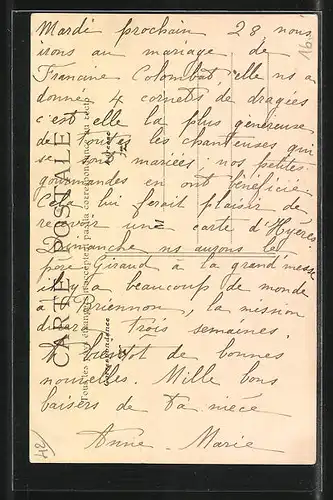 Mardi prochain 28, nous
irons au mariage de
Francine Colombat, elle ns a
donné 4 cornets de dragées
c'est elle la plus généreuse
de toutes les chanteuses qui
se sont mariées; nos petites
gourmandes en ont bénéficié
Cela lui ferait plaisir de
recevoir une carte d'Hyères
Dimanche ns aurons le
père Giraud à la grand'messe
il y a beaucoup de monde
à Briennon, la mission
dure trois semaines.
A bientôt de bonnes
nouvelles. Mille bons
baisers de ta nièce
Anne-Marie
CARTE POSTALE
42